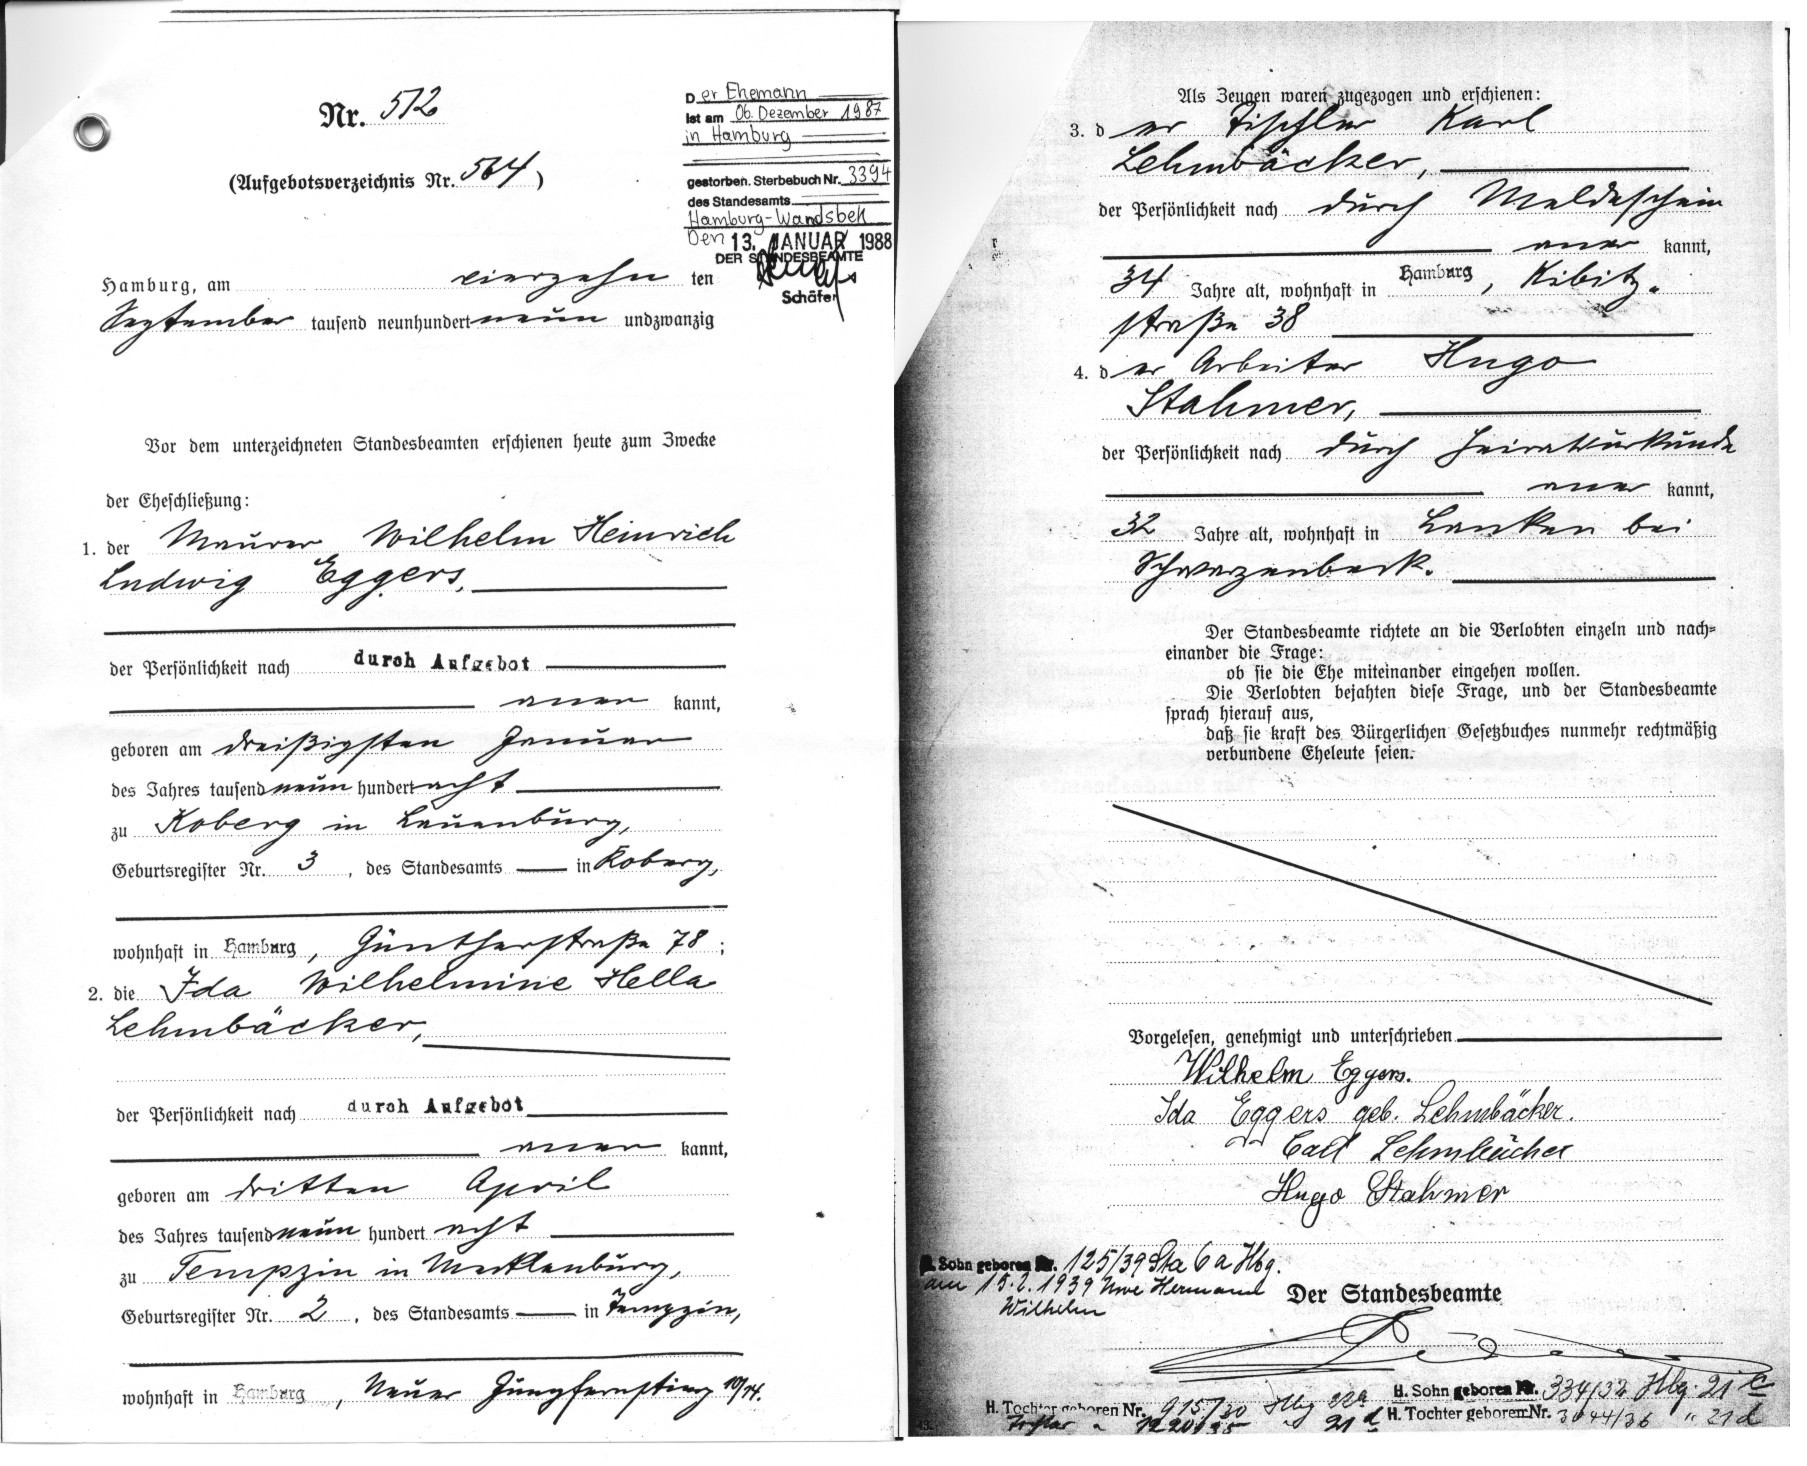 Nr. 512
(Aufgebotsverzeichnis Nr. 564)
Der Ehemann
ist am 06. Dezember 1987
in Hamburg
gestorben. Sterbebuch Nr. 3394
des Standesamts
Hamburg-Wandsbek
Den 13. JANUAR 1988
DER STANDESBEAMTE
Schäfer
Hamburg, am vierzehn ten
September tausend neunhundert neun undzwanzig
Vor dem unterzeichneten Standesbeamten erschienen heute zum Zwecke
der Eheschließung:
1. der Maurer Wilhelm Heinrich
Ludwig Eggers,
der Persönlichkeit nach durch Aufgebot
aner kannt,
geboren am dreißigsten Januar
des Jahres tausend neun hundert acht
zu Koberg in Lauenburg,
Geburtsregister Nr. 3, des Standesamts in Koberg,
wohnhaft in Hamburg, Güntherstraße 78;
2. die Ida Wilhelmine Hella
Lehmbäcker,
der Persönlichkeit nach durch Aufgebot
aner kannt,
geboren am dritten April
des Jahres tausend neun hundert acht
zu Tempzin in Mecklenburg,
Geburtsregister Nr. 2, des Standesamts in Tempzin,
wohnhaft in Hamburg, Neuer Jungfernstieg 10/14.
Als Zeugen waren zugezogen und erschienen:
3. der Tischler Karl
Lehmbäcker,
der Persönlichkeit nach durch Meldeschein
aner kannt,
34 Jahre alt, wohnhaft in Hamburg, Kibitz-
straße 38
4. der Arbeiter Hugo
Stahmer,
der Persönlichkeit nach durch Heiratsurkunde
aner kannt,
32 Jahre alt, wohnhaft in Lanken bei
Schwarzenbeck.
Der Standesbeamte richtete an die Verlobten einzeln und nach-
einander die Frage:
ob sie die Ehe miteinander eingehen wollen.
Die Verlobten bejahten diese Frage, und der Standesbeamte
sprach hierauf aus,
daß sie kraft des Bürgerlichen Gesetzbuches nunmehr rechtmäßig
verbundene Eheleute seien.
Vorgelesen, genehmigt und unterschrieben
Wilhelm Eggers.
Ida Eggers geb. Lehmbäcker.
Carl Lehmbäcker
Hugo Stahmer
Sohn geboren Nr. 125/39 Sta 6a Hbg.
am 15.2.1939 Uwe Hermann
Wilhelm
Der Standesbeamte
H. Sohn geboren Nr. 334/32 Hbg. 21 c
H. Tochter geboren Nr. 915/30 Hbg 22a
H. Tochter geboren Nr. 3044/36 " 21d
Tochter " 1220/35 21 d